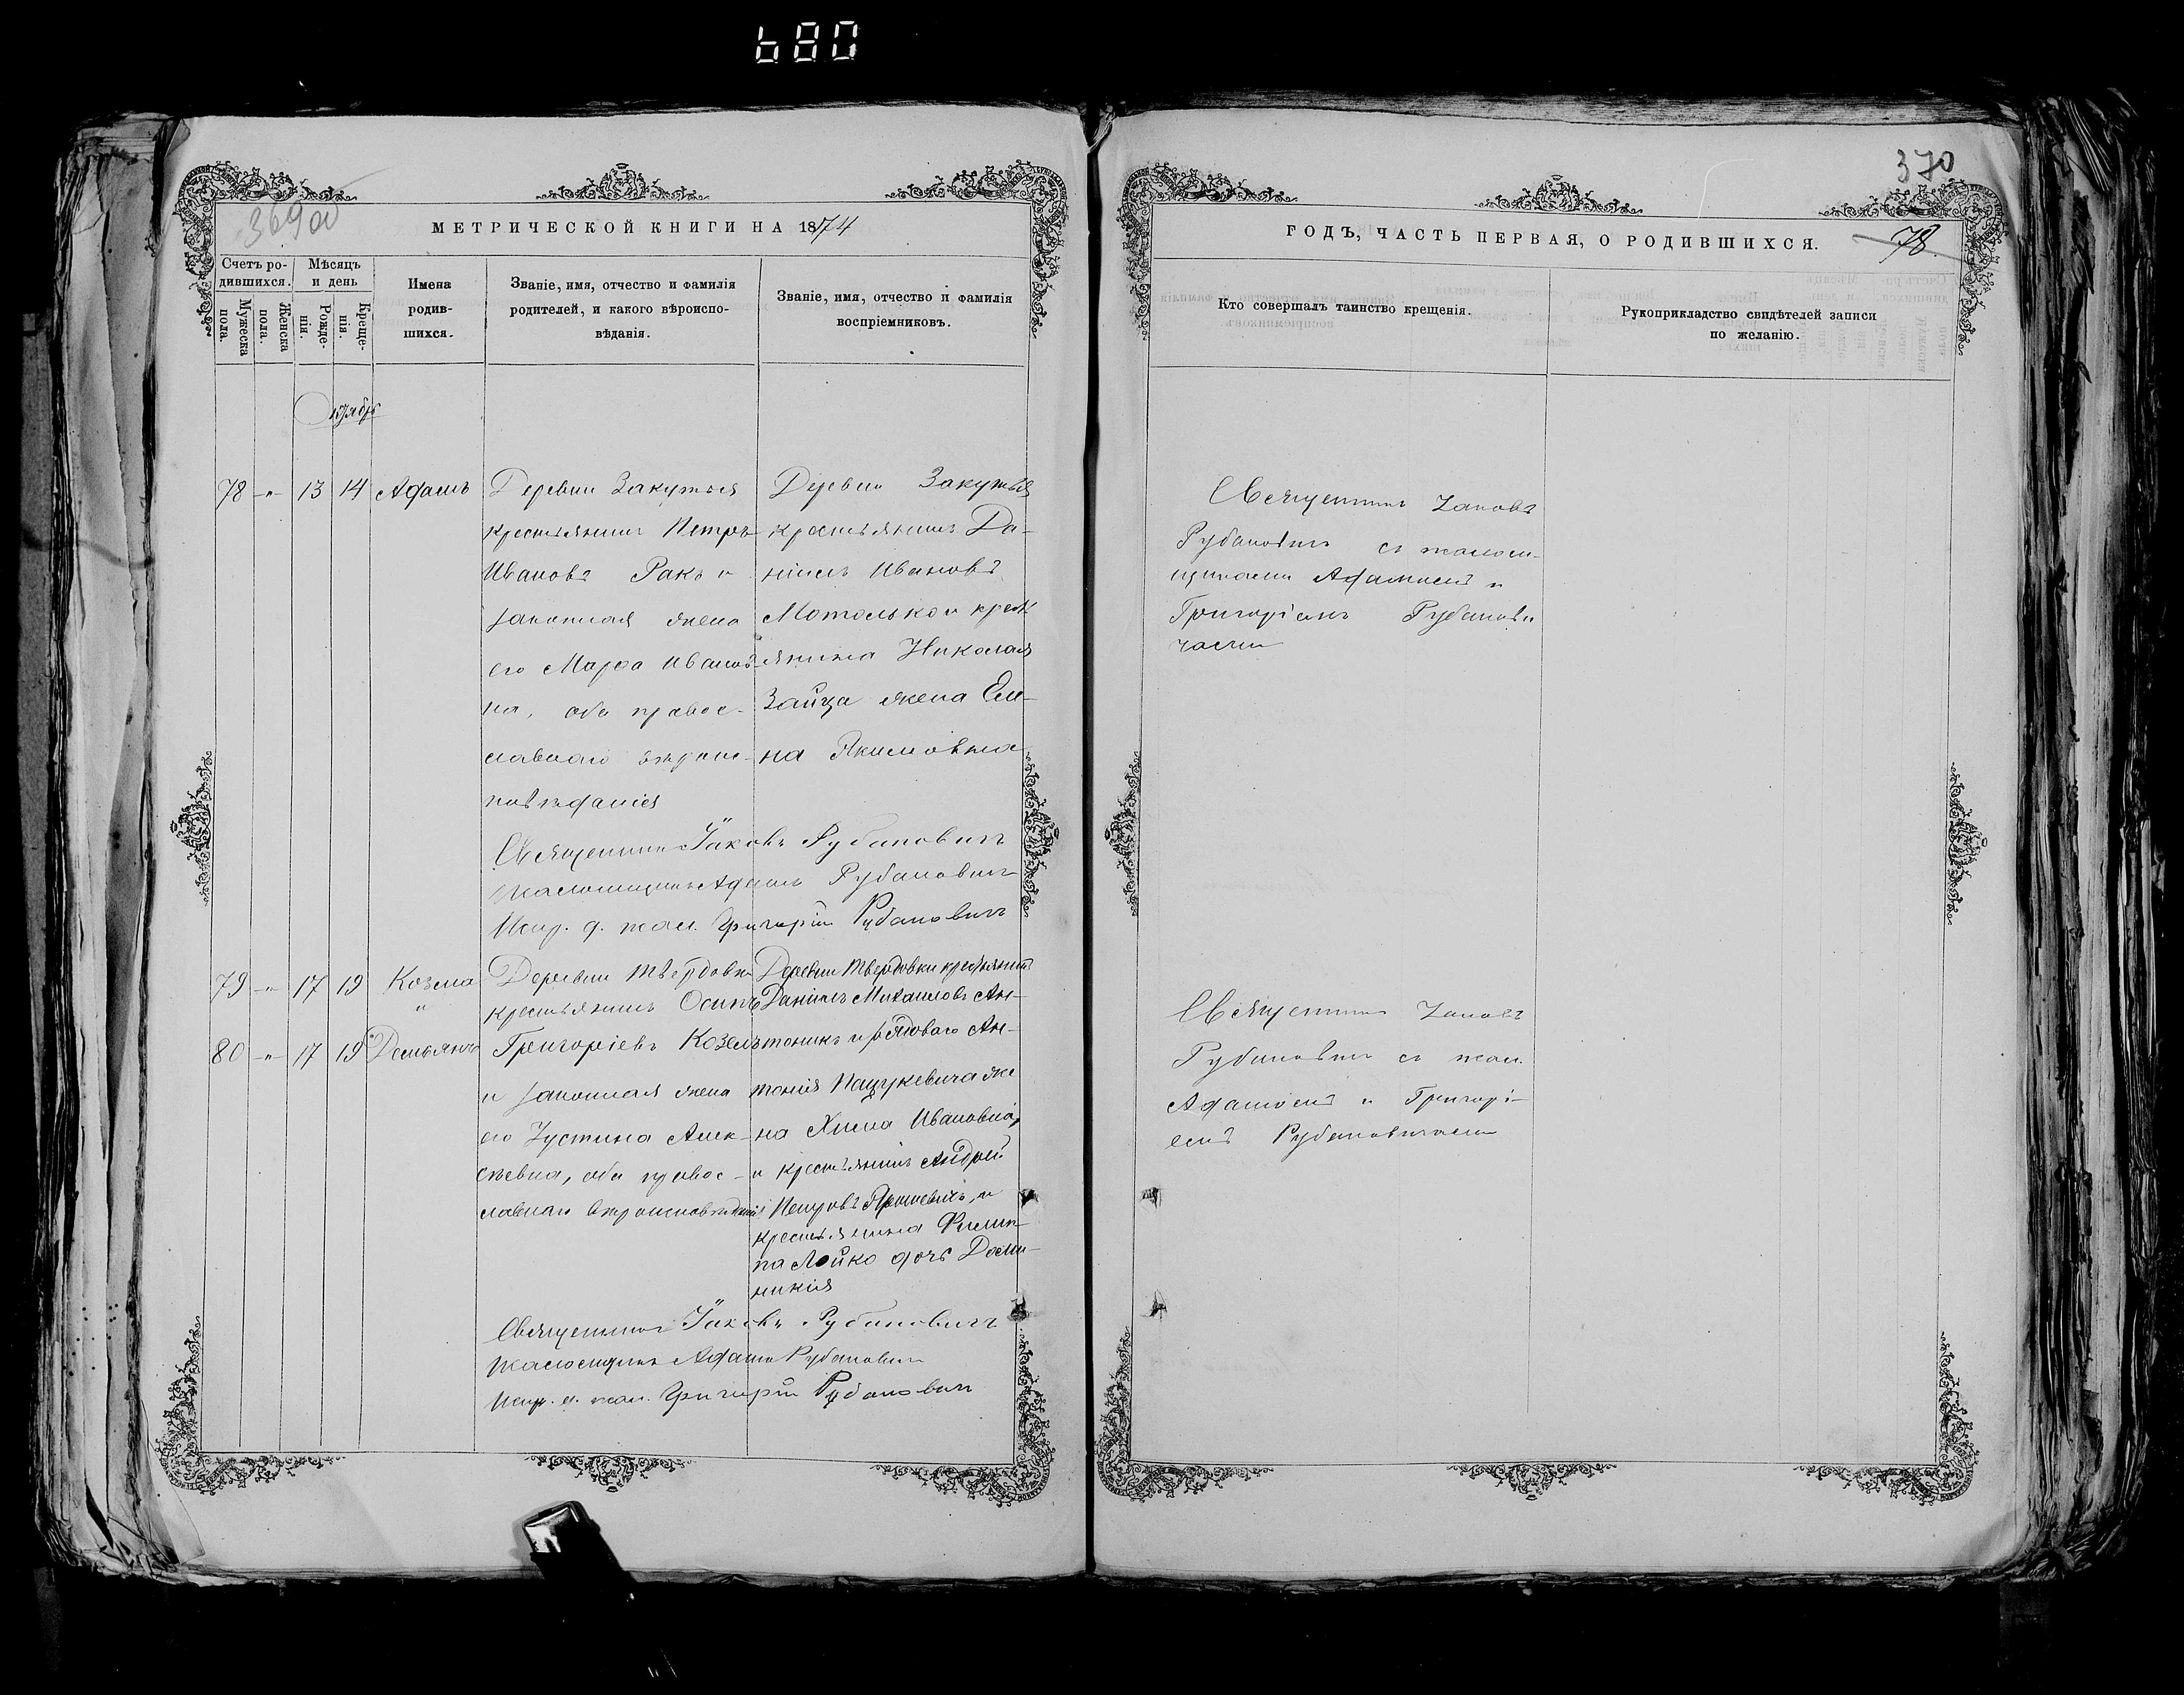 680
369об
МЕТРИЧЕСКОЙ КНИГИ НА 1874
Счетъ ро-
дившихся.
Мужеска
пола.
Женска
пола.
Мѣсяцъ
и день
Рожде-
нія.
Креще-
нія.
Имена
родив-
шихся.
Званіе, имя, отчество и фамилія
родителей, и какого вѣроиспо-
вѣданія.
Званіе, имя, отчество и фамилія
воспріемниковъ.
Октябрь
78 -"- 13 14 Адамъ
Деревни Закутья
крестьянинъ Петръ
Ивановъ Ракъ и
законная жена
его Марѳа Иванов-
на, оба правос-
лавнаго вѣроис-
повѣданія
Деревни Закутья
крестьянинъ Да-
ніилъ Ивановъ
Мотолько и крест
янина Николая
Зайца жена Еле-
на Якимовна
Священникъ Іаковъ Рубановичъ
Псаломщикъ Адамъ Рубановичъ
Испр. д. псал. Григорій Рубановичъ
79 -"- 17 19 Козма
и
80 -"- 17 19 Демьянъ
Деревни Твердовки
крестьянинъ Осипъ
Григоріевъ Козелъ
и законная жена
его Іустина Алек-
сѣевна, оба правос-
лавнаго вѣроисповѣданія
Деревни Твердовки крестьянинъ
Даніилъ Михаиловъ Ан-
тоникъ и рядоваго Ан-
тонія Пацукевича же
на Хима Ивановна,
и крестьянинъ Андрей
Петровъ Ярошевичъ, и
крестьянина Филип-
па Лойко дочь Доми-
никія
Священникъ Іаковъ Рубановичъ
Псаломщикъ Адамъ Рубановичъ
Испр. д. псал. Григорій Рубановичъ
370
ГОДЪ, ЧАСТЬ ПЕРВАЯ, О РОДИВШИХСЯ.
78
Кто совершалъ таинство крещенія.
Рукоприкладство свидѣтелей записи
по желанію.
Священникъ Іаковъ
Рубановичъ съ псалом-
щиками Адамомъ и
Григоріемъ Рубанови
чами
Священникъ Іаковъ
Рубановичъ съ псал.
Адамомъ и Григорі-
емъ Рубановичами